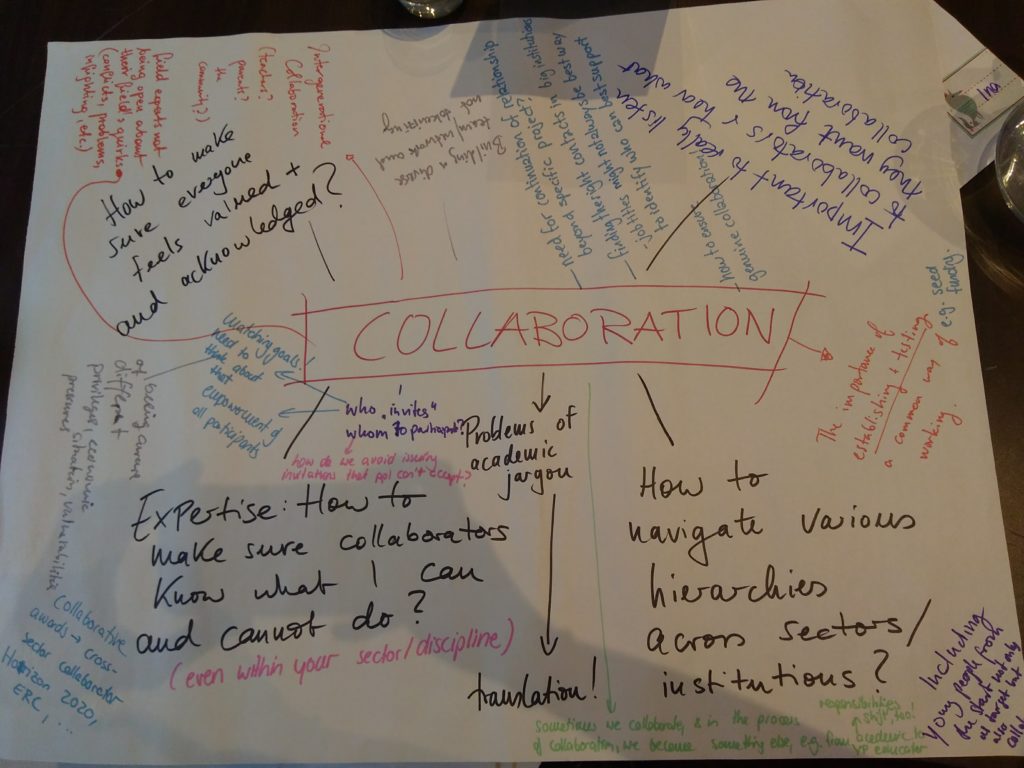 COLLABORATION
field experts not
being open about
their field's quirks
(conflicts, problems,
infighting, etc)
Intergenerational
Collaboration
(teachers?
parents?
the
community?)
How to make
sure everyone
feels valued +
and acknowledged?
Building a diverse
team/network and
not tokenizing
– need for continuation of relationship
beyond specific project?
– finding the right contacts in big institutions
to identify who can best support
– how to ensure
genuine collaboration?
Important to really listen
to collaborators & hear what
they want from the
collaboration
Ina
e.g. seed
funding
The importance of
establishing + testing
a common way of
working.
Matching goals!
need to
think about
that
empowerment of
all participants
who "invites"
whom to participate?
how do we avoid issuing
invitations that ppl can't accept?
of being aware
different
privileges, economic
situation, vulnerabilities
Problems of
academic
jargon
translation!
Expertise: How to
make sure collaborators
know what I can
and cannot do?
(even within your sector/discipline)
How to
navigate various
hierarchies
across sectors/
institutions?
Collaborative
awards → cross-
sector collaborator
Horizon 2020,
ERC, ...
Sometimes we collaborate, & in the process
of collaboration, we become something else, e.g. from academic to
YP educator
responsibilities
shift, too!
Including
young people from
the start not only
as target but
also as